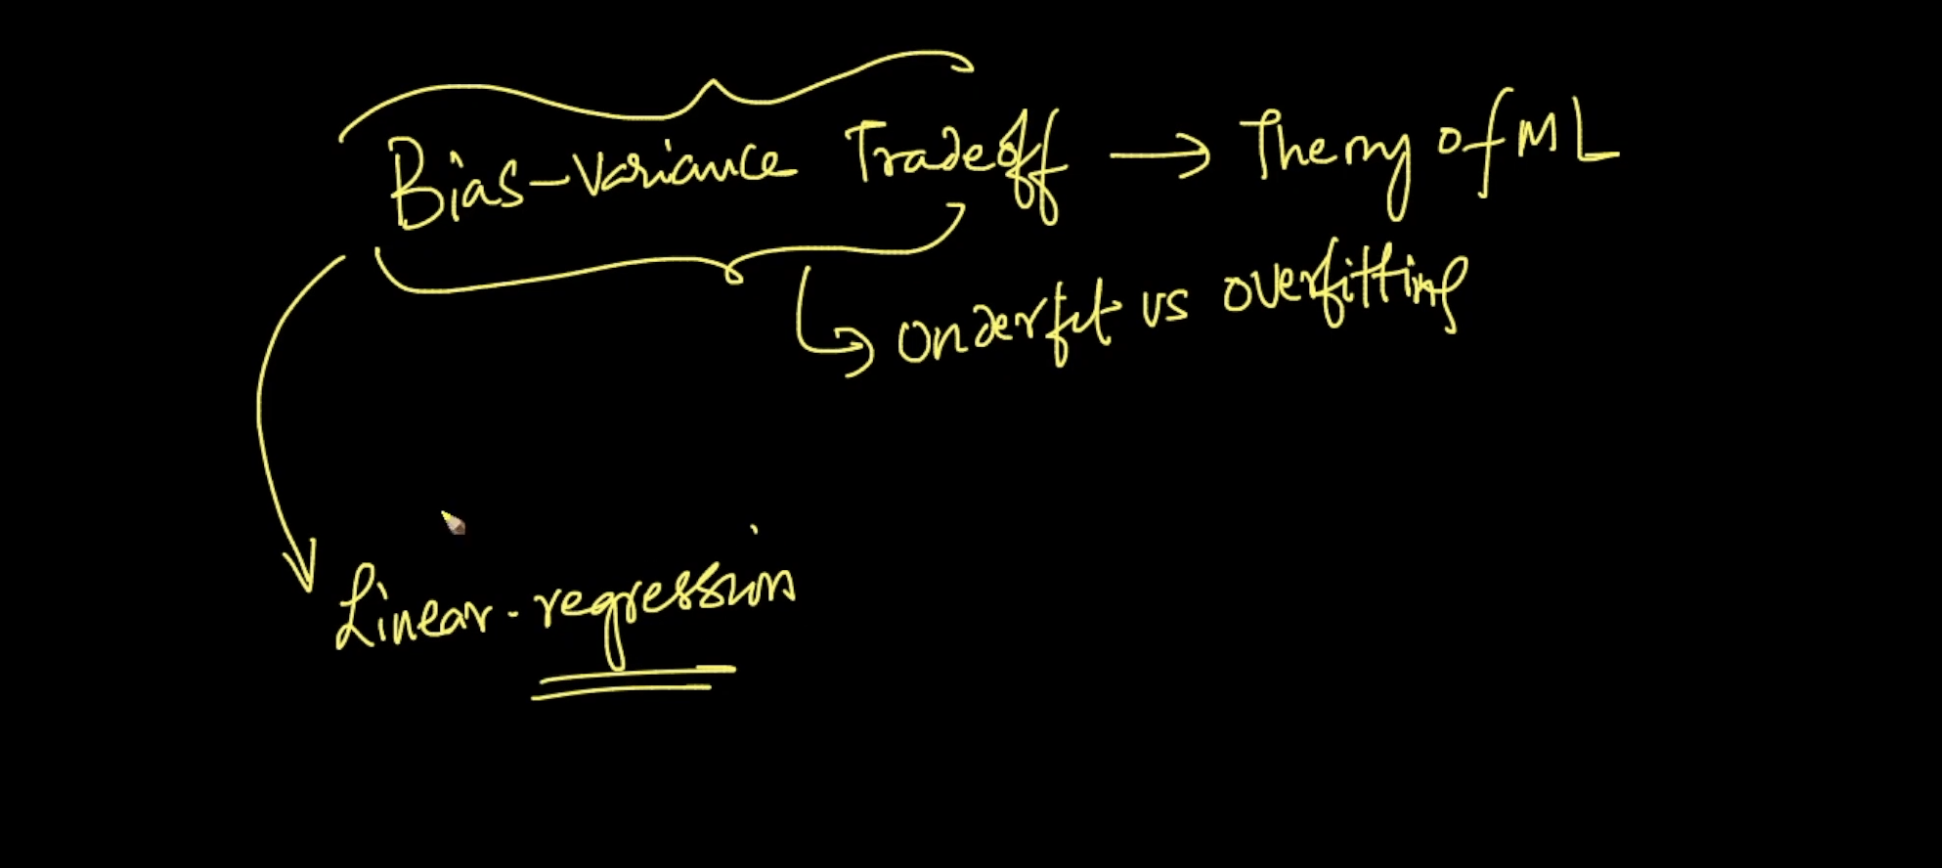 Bias-Variance Tradeoff → Theory of ML
↳ underfit vs overfitting
Linear-regression